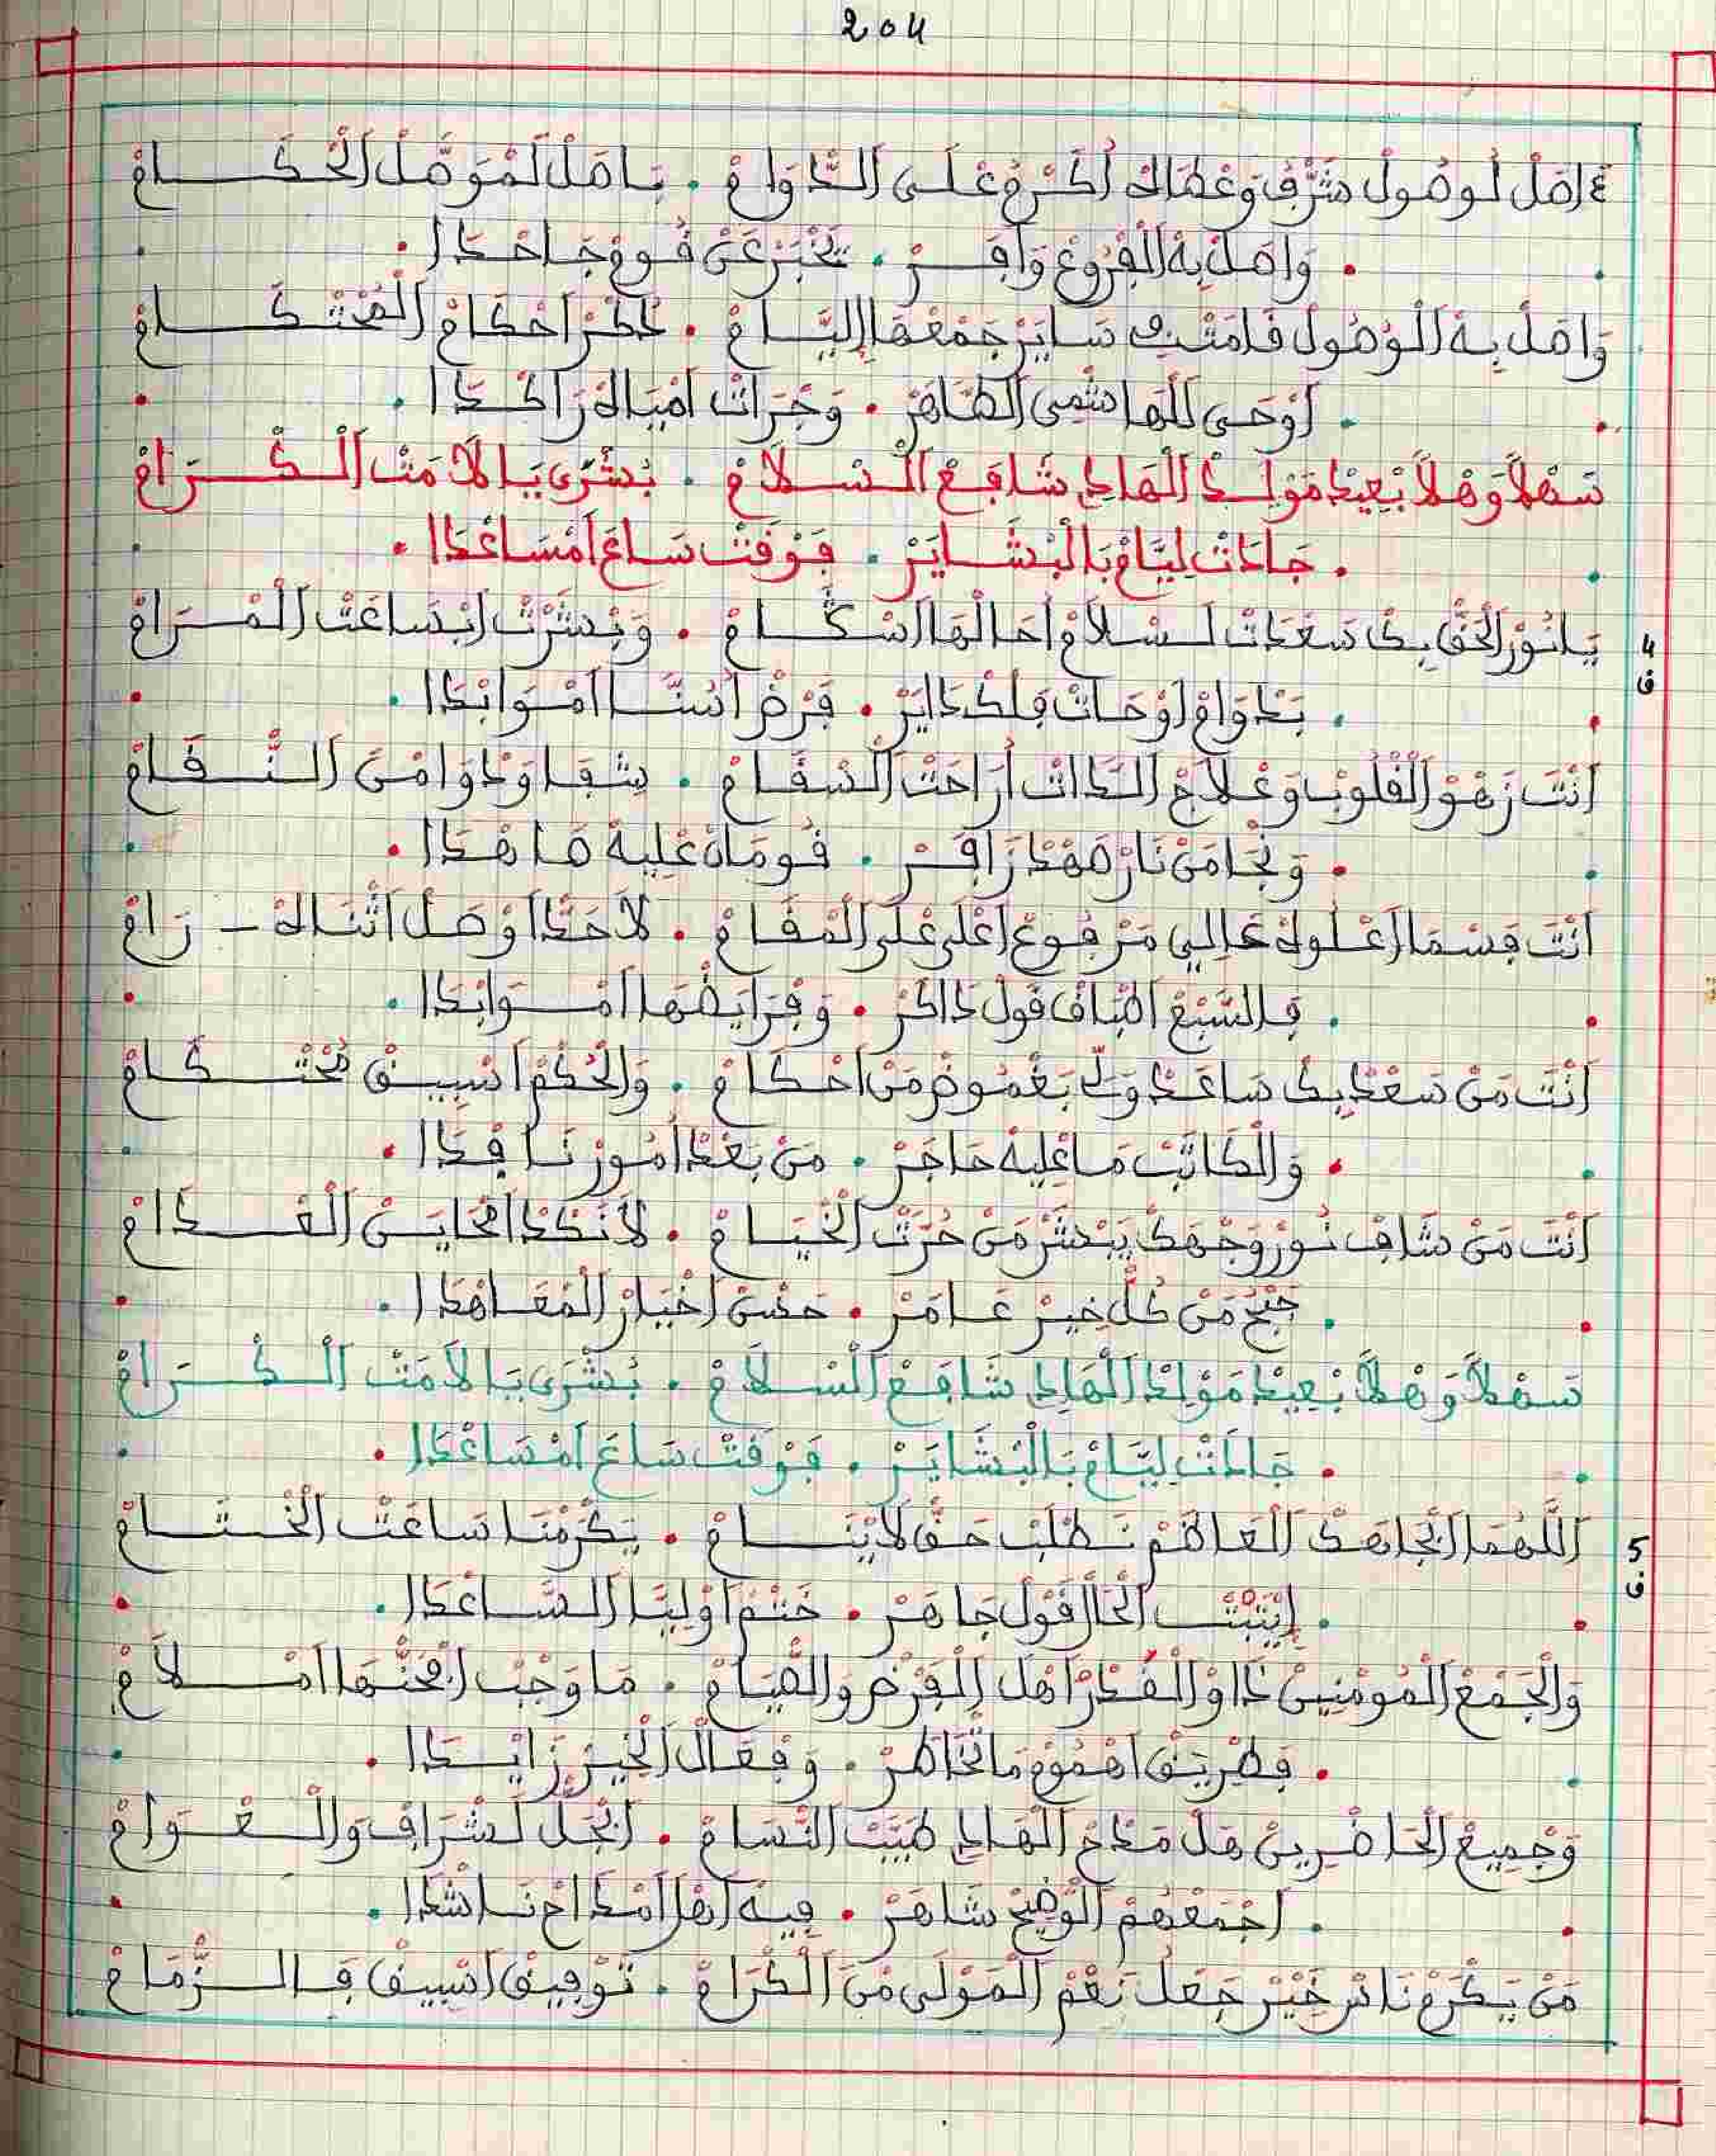 204
ءاصَلْ لُوصُولْ شَرَّفْ وَعْطَاكْ أُكْرَمْ عْلَى الدْوَامْ . يَاصَلْ لَمْوَصَّلْ الْحْكَامْ
وَاصَلْ بِهْ الْفْرُوعْ وَافَرْ . يَخْبَرْ عَنْ قُومْ جَاحْدَا
وَاصَلْ بِهْ الْوُصُولْ قَامَتْ سَايَرْ جَمْعْهَا الِيَّامْ . أَحْكَامْ الْمُحْتْكَامْ
أَوْحَى لَلْهَاشْمِي الطَّاهَرْ . وَجْرَاتْ امْيَاهْ رَاكْدَا
سَهْلاً وَهْلاً بْعِيدْ مَوْلِدْ الْهَادِي شَافِعْ السْلاَمْ . بُشْرَى يَا لاَمَتْ الْكْرَامْ
جَادَتْ لِيَّامْ بَالْبْشَايَرْ . فَوْقَتْ سَاعَ امْسَاعْدَا
4
ف
يَانُورْ الْحَقْ بِكْ سَعْدَاتْ لَسْلاَمْ احَالْهَا اسْكَامْ . وَبْشَرَتْ ابْسَاعَتْ الْمْرَامْ
بَدْوَامْ أَوْحَاتْ فَلْكْ دَايَرْ . فَرْضْ السُنَّا امْوَابْدَا
أَنْتَ زَهْوْ الْقْلُوبْ وَعْلاَجْ الدَّاتْ أُرَاحَتْ السْقَامْ . شْفَا وَدْوَا مْنَ النْقَامْ
وَنْجَا مَنْ نَارْ صَهْدْ زَافَرْ . قُومَانْ عْلِيهْ صَاهْدَا
أَنْتَ فَسْمَا اعْلُوكْ عَالِي مَرْفُوعْ اعْلَى عْلَى الْمْقَامْ . لاَحَدْ اوْصَلْ اثْنَاكْ - رَامْ
فَالسَّبْعْ اطْبَاقْ قَوْلْ دَاكَرْ . وَفْرَايَضْهَا امْوَابْدَا
أَنْتَ مَنْ سَعْدْ بِكْ سَاعَدْ وَلِّي بَغْمُوضْ مَنْ احْكَامْ . وَالْحُكْمْ اسْبِيقْ مُحْتْكَامْ
وَالْكَاتَبْ مَاعْلِيهْ حَاجَرْ . مَنْ بَعْدْ أُمُورْ نَافْدَا
أَنْتَ مَنْ شَافْ نُورْ وَجْهَكْ يَبْشَرْ مَنْ حُرْتْ الْخْيَامْ . لاَنَكْدْ امْحَايَنْ الْعْدَامْ
جْبَحْ مَنْ كُلْ خِيرْ عَامَرْ . حَصَّنْ اخْيَارْ الْمْعَاهْدَا
سَهْلاً وَهْلاً بْعِيدْ مَوْلِدْ الْهَادِي شَافِعْ السْلاَمْ . بُشْرَى يَا لاَمَتْ الْكْرَامْ
جَادَتْ لِيَّامْ بَالْبْشَايَرْ . فَوْقَتْ سَاعَ امْسَاعْدَا
5
ف
اللَّهُمَّا ابْجَاهَكْ الْعَاظَمْ نَطْلَبْ حَقْ لاَيْنَامْ . يَكْرَمْنَا سَاعَتْ الْخْتَامْ
ايْتَبَّتْ الْحَالْ قَوْلْ جَاهَرْ . خَتْمْ اوْلِيَّا السَّاعْدَا
وَالْجَمْعْ الْمُومْنِينْ اهْلْ الْفَرْضْ وَالصْيَامْ . مَاوَجْبْ ابْحَنْهَا امْلاَمْ
فَطْرِيقْ اهْمُومْ مَاتْخَاطَرْ . وَفْعَالْ الْخِيرْ زَايْدَا
وَجْمِيعْ الْحَاضْرِينْ هَلْ مَدْحْ الْهَادِي طَيَبْ النْسَامْ . ابْجَلْ لَشْرَافْ وَالْعْوَامْ
اجْمَعْهُمْ الْوْضِيحْ شَاهَرْ . فِيهْ اهْلْ امْدَاحْ نَاشْدَا
مَنْ يَكْرَمْ نَاسْ خَيْرْ جَعْلْ نَعْمْ الْمَوْلَى مْنَ الْكْرَامْ . تَوْفِيقْ اسْبِيقْ فَالزْمَامْ